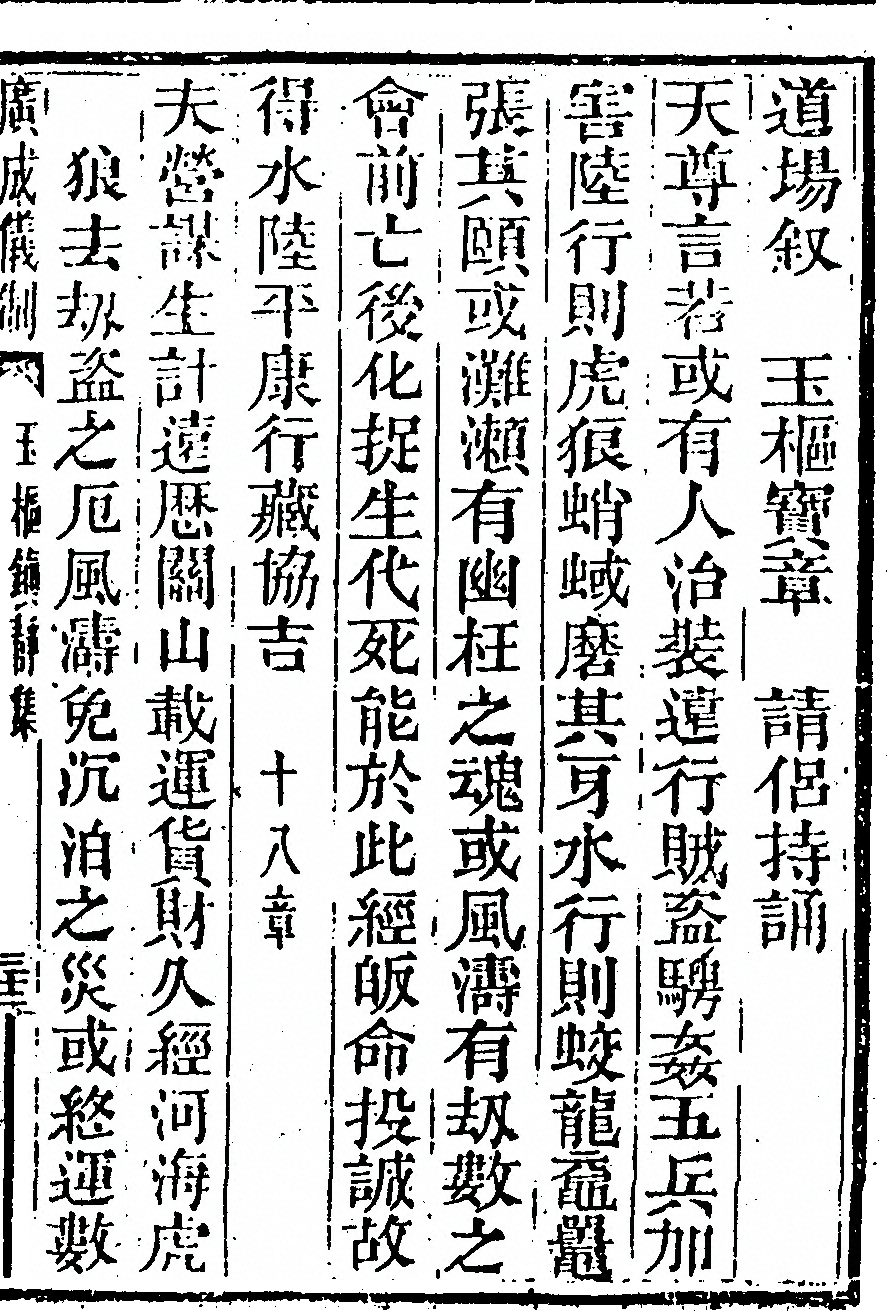 道場叙　玉樞寶章　請侶持誦
天尊言若或有人治裝遠行賊盜騁姦五兵加
害陸行則虎狼蛸蜮磨其牙水行則蛟龍黿鼉
張其頤或灘瀨有幽枉之魂或風濤有刼數之
會前亡後化捉生代死能於此經皈命投誠故
得水陸平康行藏協吉　十八章
夫營謀生計遠歷關山載運貨財久經河海虎
狼去刼盜之厄風濤免沉泊之災或終運數
廣成儀制　玉樞鎮靜集　三十三